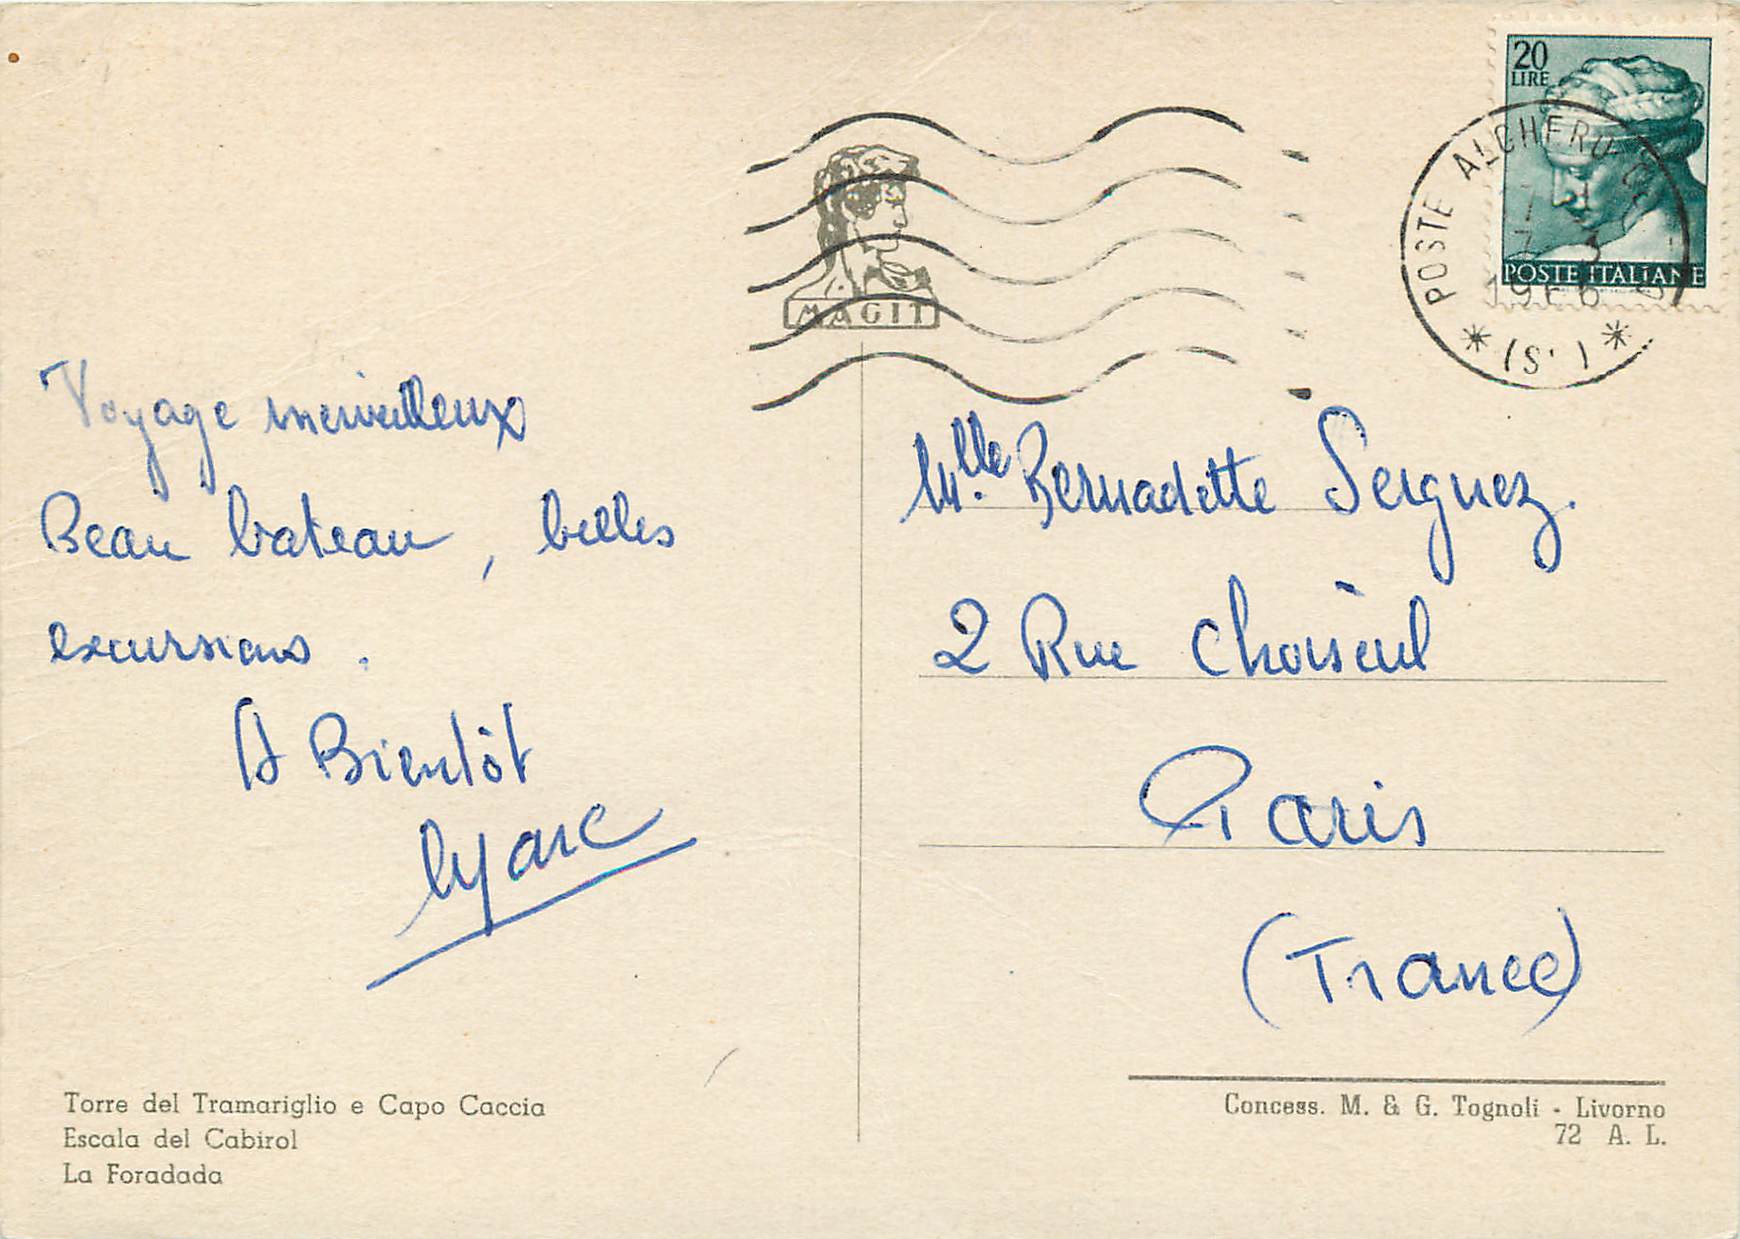 20
LIRE
POSTE ITALIANE
POSTE ALGHERO
1966
(S.)
MAGIT
Voyage merveilleux
Beau bateau, belles
excursions.
A Bientôt
Marc
Mlle Bernadette Serguez.
2 Rue Choiseul
Paris
(France)
Torre del Tramariglio e Capo Caccia
Escala del Cabirol
La Foradada
Concess. M. & G. Tognoli - Livorno
72 A. L.